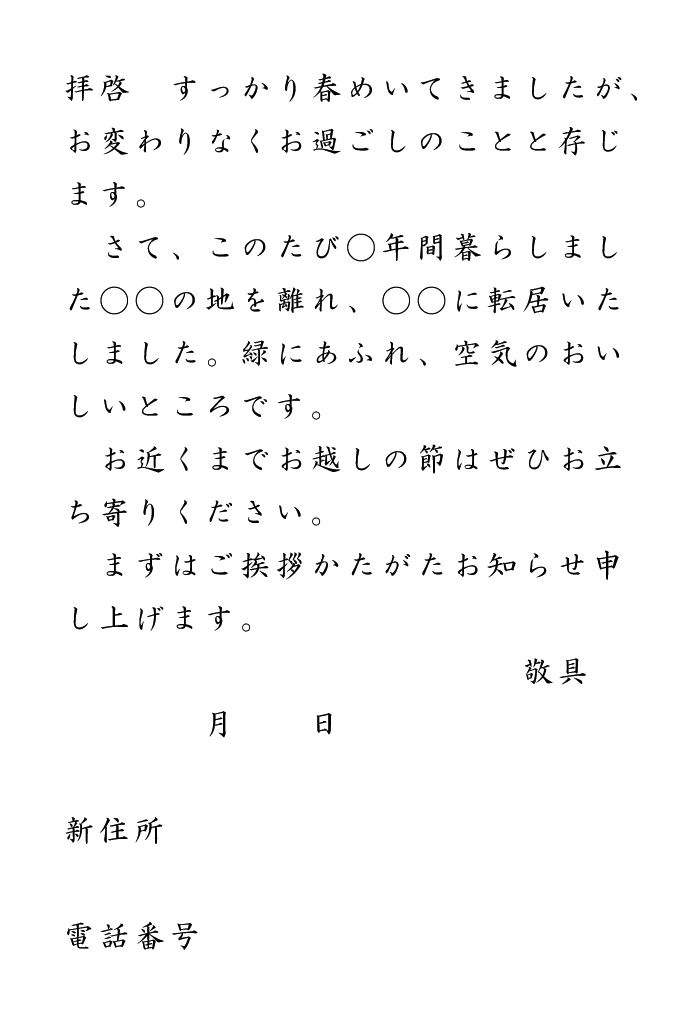 拝啓　すっかり春めいてきましたが、
お変わりなくお過ごしのことと存じ
ます。
　さて、このたび〇年間暮らしまし
た〇〇の地を離れ、〇〇に転居いた
しました。緑にあふれ、空気のおい
しいところです。
　お近くまでお越しの節はぜひお立
ち寄りください。
　まずはご挨拶かたがたお知らせ申
し上げます。
敬具
月　　日
新住所
電話番号